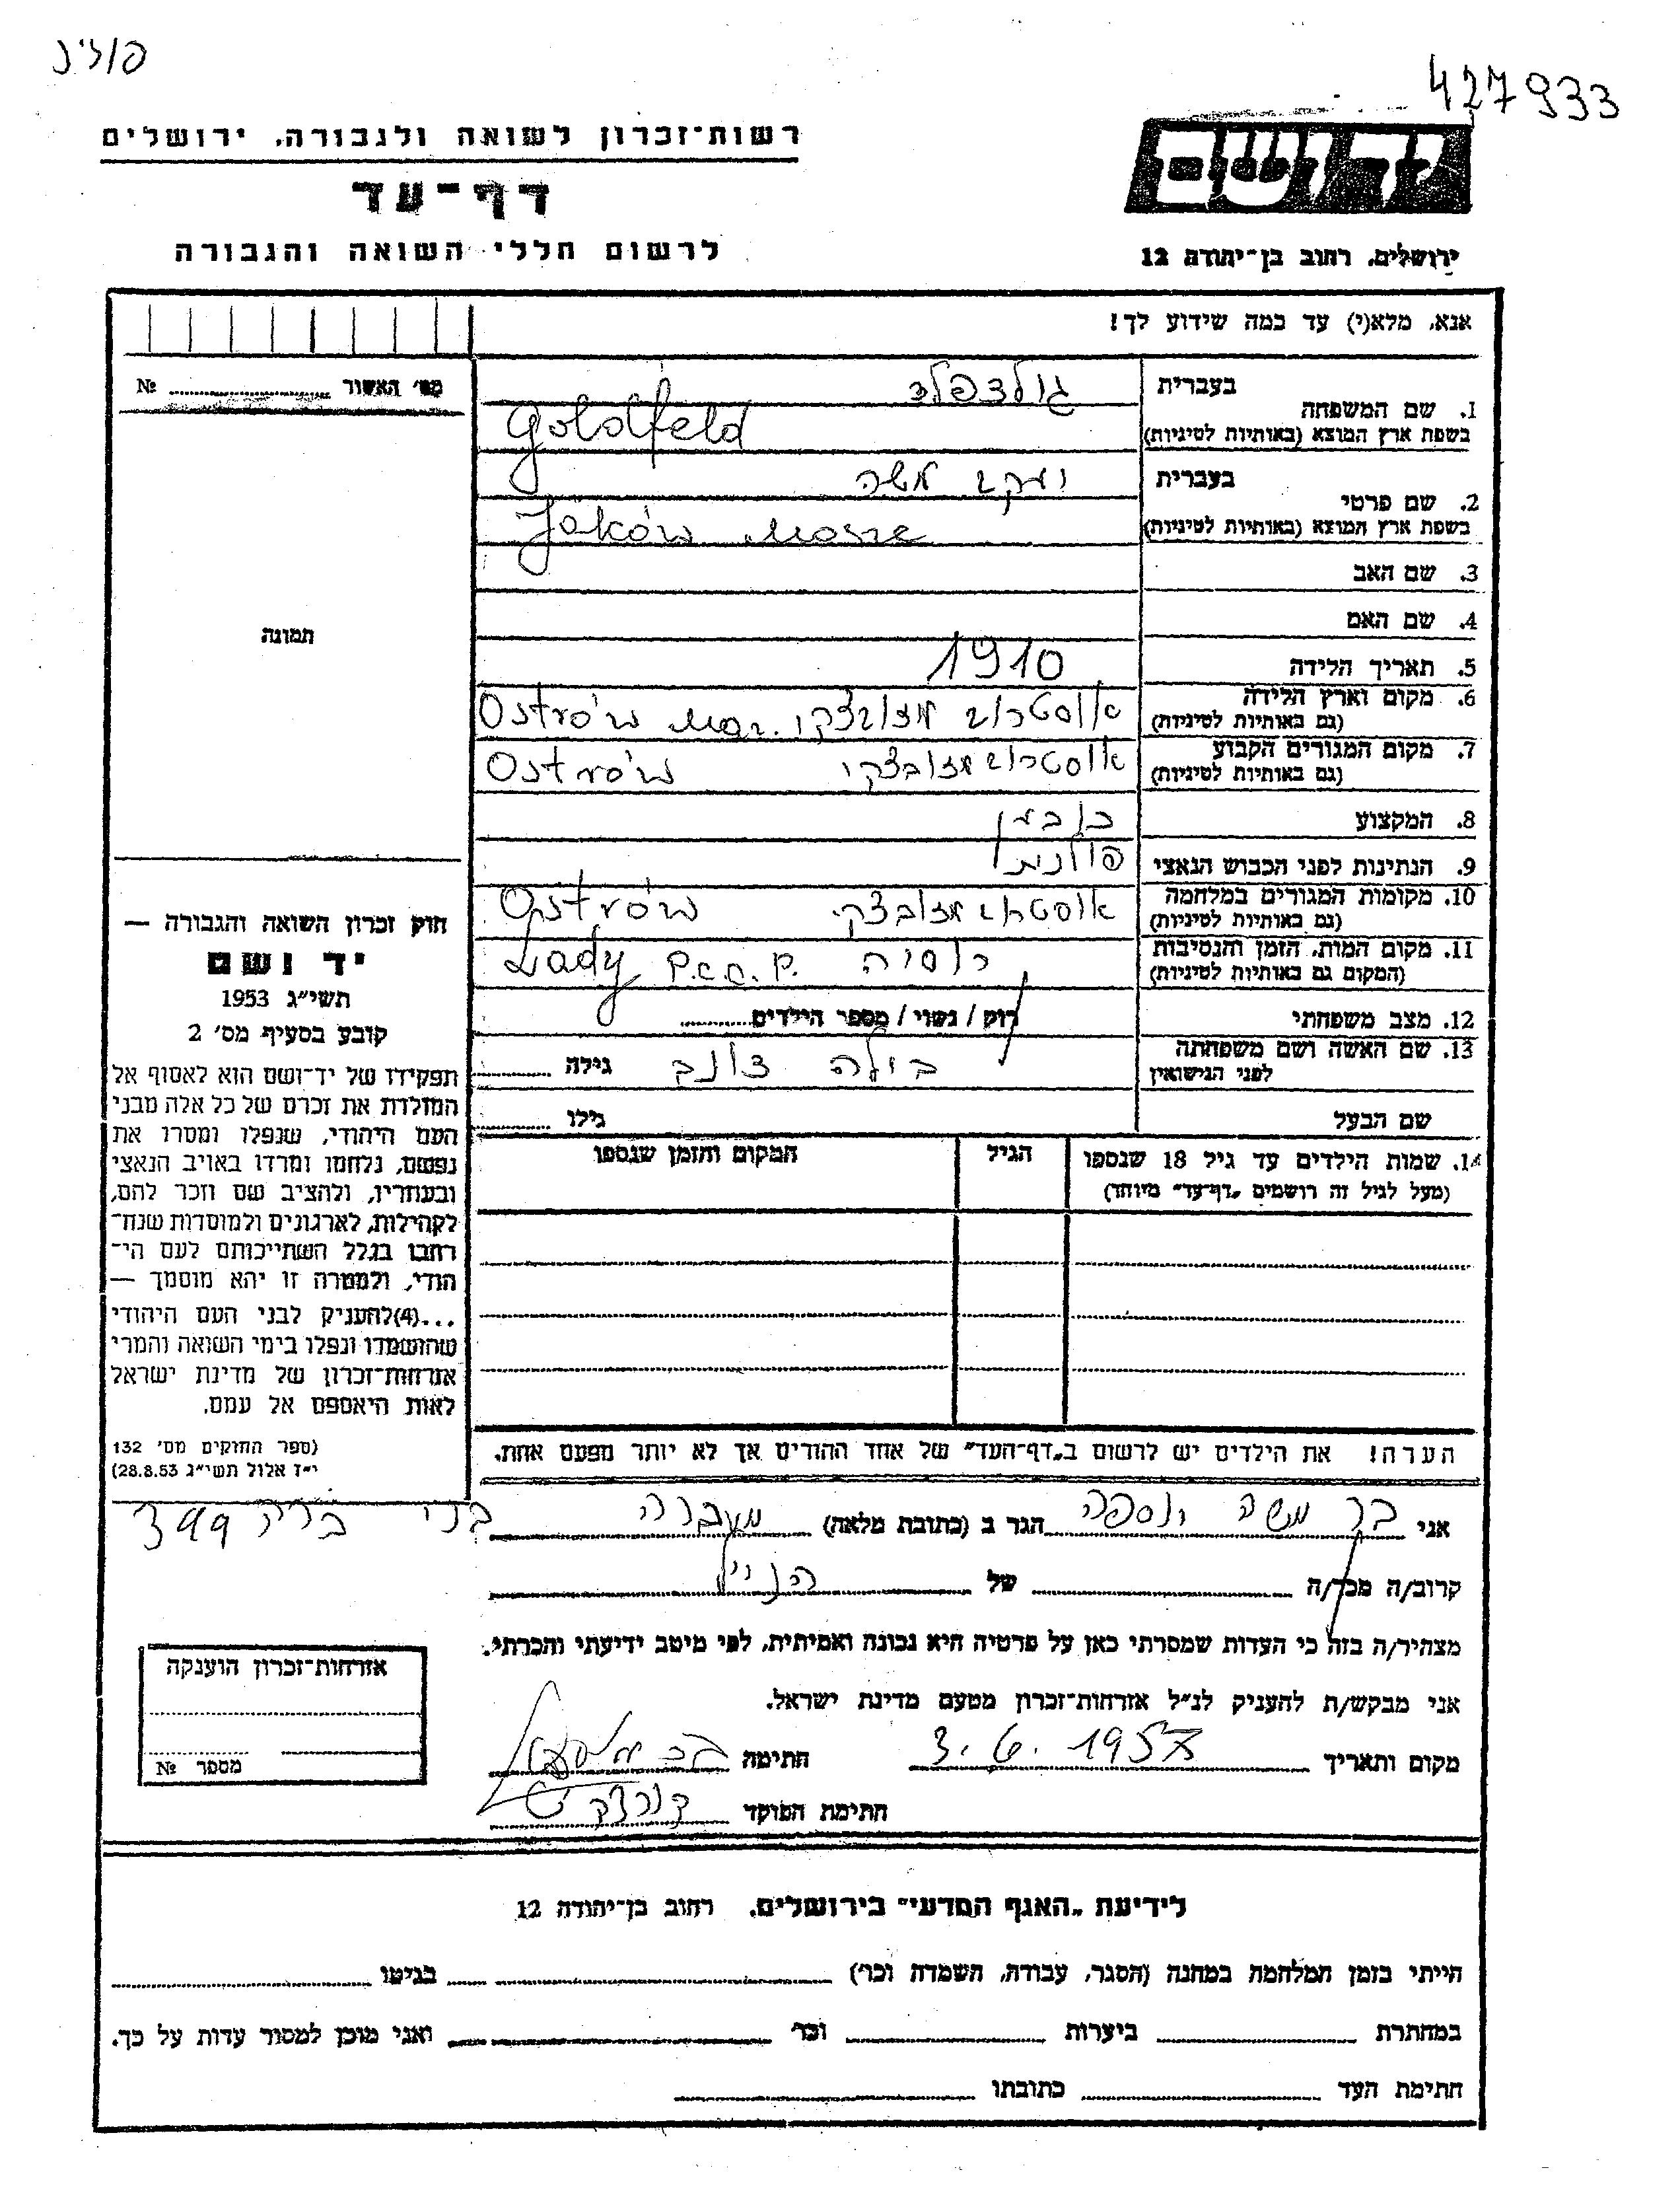 פולין
427933
רשות־זכרון לשואה ולגבורה, ירושלים
דף־עד
לרשום חללי השואה והגבורה
יד ושם
ירושלים, רחוב בן־יהודה 12
אנא, מלא(י) עד כמה שידוע לך!
מס׳ האשור № 
תמונה
בעברית גולדפלד
1. שם המשפחה
בשפת ארץ המוצא (באותיות לטיניות) Goldfeld
בעברית יעקב משה
2. שם פרטי
בשפת ארץ המוצא (באותיות לטיניות) Jaków Mosze
3. שם האב
4. שם האם
5. תאריך הלידה 1910
6. מקום וארץ הלידה אוסטרוב מזובצקי Ostrów Maz.
(גם באותיות לטיניות)
7. מקום המגורים הקבוע אוסטרוב מזובצקי Ostrów
(גם באותיות לטיניות)
8. המקצוע
9. הנתינות לפני הכבוש הנאצי פולנית
10. מקומות המגורים במלחמה אוסטרוב מזובצקי Ostrów
(גם באותיות לטיניות)
11. מקום המות, הזמן והנסיבות רוסיה
(המקום גם באותיות לטיניות)
12. מצב משפחתי רווק / נשוי / מספר הילדים
13. שם האשה ושם משפחתה
לפני הנישואין גילה
שם הבעל גילו
14. שמות הילדים עד גיל 18 שנספו הגיל המקום והזמן שנספו
(מעל לגיל זה רושמים „דף־עד״ מיוחד)
חוק זכרון השואה והגבורה —
יד ושם
תשי״ג 1953
קובע בסעיף מס׳ 2
תפקידו של יד־ושם הוא לאסוף אל
המולדת את זכרם של כל אלה מבני
העם היהודי, שנפלו ומסרו את
נפשם, נלחמו ומרדו באויב הנאצי
ובעוזריו, ולהציב שם וזכר להם,
לקהילות, לארגונים ולמוסדות שנח־
רבו בגלל השתייכותם לעם הי־
הודי, ולמטרה זו יהא מוסמך —
...(4)להעניק לבני העם היהודי
שהושמדו ונפלו בימי השואה והמרי
אזרחות־זכרון של מדינת ישראל
לאות היאספם אל עמם.
(ספר החוקים מס׳ 132
י״ז אלול תשי״ג 28.8.53)
הערה! את הילדים יש לרשום ב„דף־העד״ של אחד ההורים אך לא יותר מפעם אחת.
אני בר משה יוספה הגר ב (כתובת מלאה) מעברה בני ברק 399
קרוב/ה מכר/ה של הנ״ל
מצהיר/ה בזה כי העדות שמסרתי כאן על פרטיה היא נכונה ואמיתית, לפי מיטב ידיעתי והכרתי.
אני מבקש/ת להעניק לנ״ל אזרחות־זכרון מטעם מדינת ישראל.
מקום ותאריך 3.6.1957 חתימה
חתימת הפוקד
אזרחות־זכרון הוענקה
מספר №
לידיעת „האגף המדעי״ בירושלים, רחוב בן־יהודה 12
הייתי בזמן המלחמה במחנה (הסגר, עבודה, השמדה וכו׳) בגיטו
במחתרת ביערות וכו׳ ואני מוכן למסור עדות על כך.
חתימת העד כתובתו